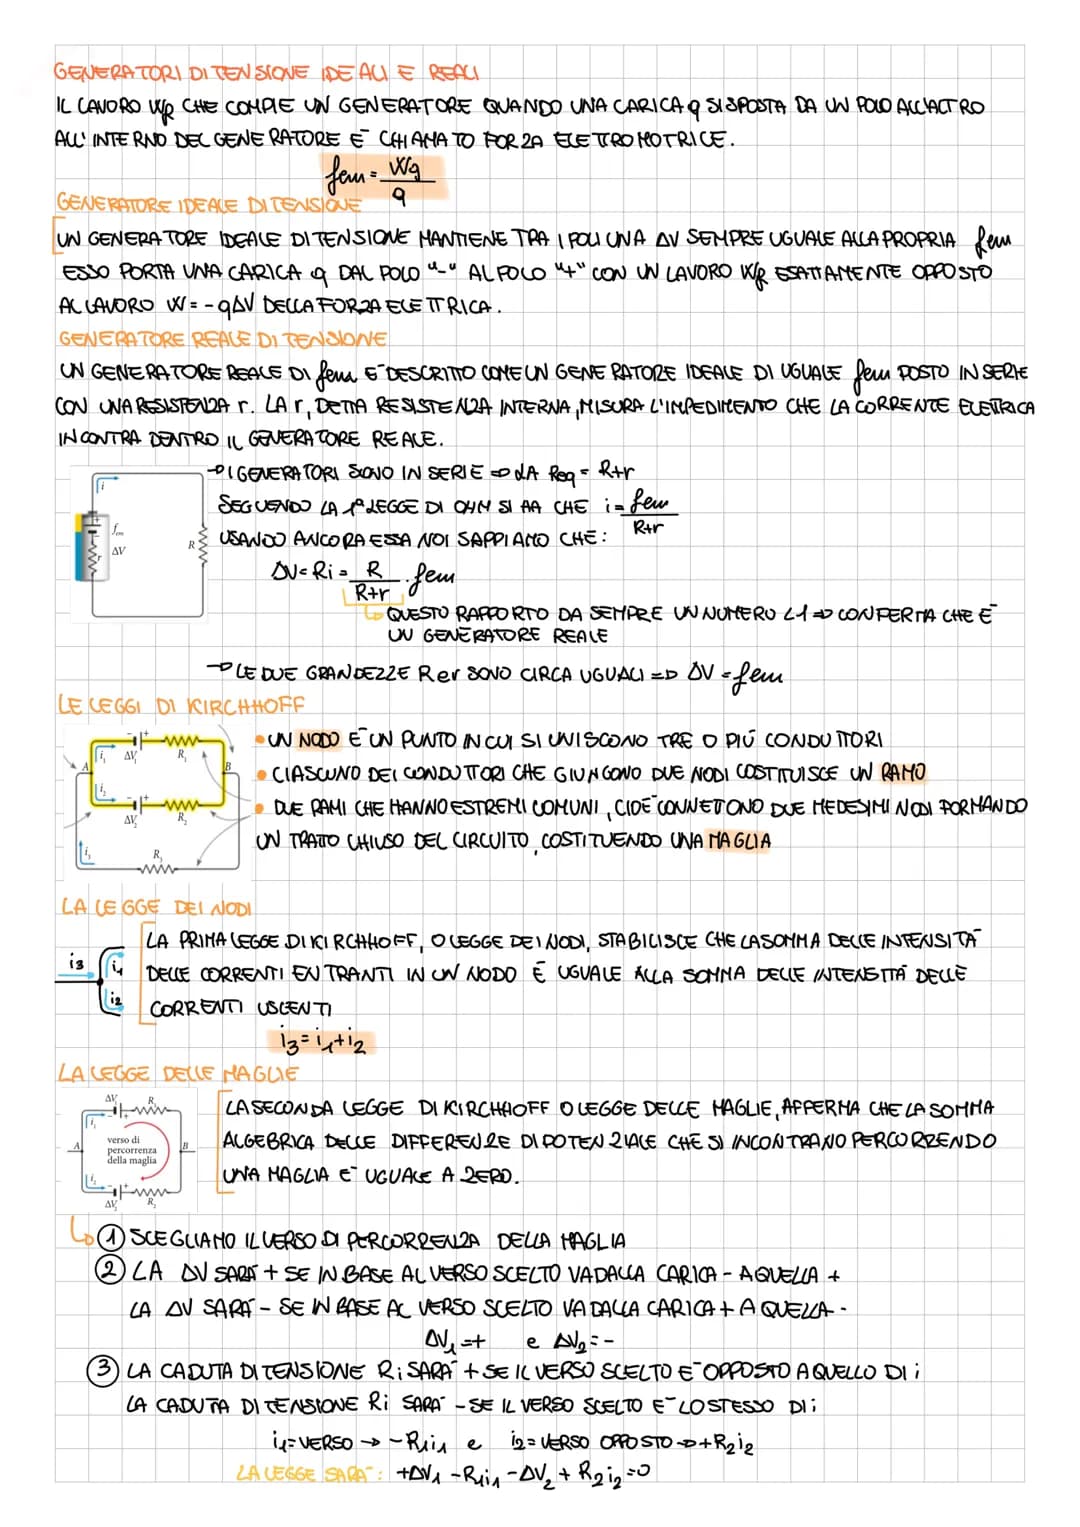 GENERATORI DI TENSIONE IDEALI E REALI
IL LAVORO Wg CHE COMPIE UN GENERATORE QUANDO UNA CARICA q SI SPOSTA DA UN POLO ALL'ALTRO
ALL'INTERNO DEL GENERATORE È CHIAMATO FORZA ELETTROMOTRICE.
fem = Wg / q
GENERATORE IDEALE DI TENSIONE
UN GENERATORE IDEALE DI TENSIONE MANTIENE TRA I POLI UNA ΔV SEMPRE UGUALE ALLA PROPRIA fem
ESSO PORTA UNA CARICA q DAL POLO "-" AL POLO "+" CON UN LAVORO Wg ESATTAMENTE OPPOSTO
AL LAVORO W = -qΔV DELLA FORZA ELETTRICA.
GENERATORE REALE DI TENSIONE
UN GENERATORE REALE DI fem È DESCRITTO COME UN GENERATORE IDEALE DI UGUALE fem POSTO IN SERIE
CON UNA RESISTENZA r. LA r, DETTA RESISTENZA INTERNA, MISURA L'IMPEDIMENTO CHE LA CORRENTE ELETTRICA
INCONTRA DENTRO IL GENERATORE REALE.
→ I GENERATORI SONO IN SERIE ⇒ LA Req = R+r
SEGUENDO LA 1ª LEGGE DI OHM SI HA CHE i = fem / R+r
USANDO ANCORA ESSA NOI SAPPIAMO CHE:
ΔV = Ri = R / R+r · fem
QUESTO RAPPORTO DA SEMPRE UN NUMERO <1 ⇒ CONFERMA CHE È
UN GENERATORE REALE
i
fem
ΔV
r
R
→ LE DUE GRANDEZZE R e r SONO CIRCA UGUALI ⇒ ΔV = fem
LE LEGGI DI KIRCHHOFF
• UN NODO È UN PUNTO IN CUI SI UNISCONO TRE O PIÚ CONDUTTORI
• CIASCUNO DEI CONDUTTORI CHE GIUNGONO DUE NODI COSTITUISCE UN RAMO
• DUE RAMI CHE HANNO ESTREMI COMUNI, CIOÈ CONNETONO DUE MEDESIMI NODI FORMANDO
UN TRATTO CHIUSO DEL CIRCUITO, COSTITUENDO UNA MAGLIA
i₁ ΔV₁ R₁
A B
i₂ ΔV₂ R₂
i₃ R₃
LA LEGGE DEI NODI
LA PRIMA LEGGE DI KIRCHHOFF, O LEGGE DEI NODI, STABILISCE CHE LA SOMMA DELLE INTENSITÀ
DELLE CORRENTI ENTRANTI IN UN NODO È UGUALE ALLA SOMMA DELLE INTENSITÀ DELLE
CORRENTI USCENTI
i3 i1
i2
i3 = i1 + i2
LA LEGGE DELLE MAGLIE
LA SECONDA LEGGE DI KIRCHHOFF O LEGGE DELLE MAGLIE, AFFERMA CHE LA SOMMA
ALGEBRICA DELLE DIFFERENZE DI POTENZIALE CHE SI INCONTRANO PERCORRENDO
UNA MAGLIA È UGUALE A ZERO.
ΔV₁ R₁
i₁
A verso di B
percorrenza
della maglia
i₂
ΔV₂ R₂
① SCEGLIAMO IL VERSO DI PERCORRENZA DELLA MAGLIA
② LA ΔV SARÁ + SE IN BASE AL VERSO SCELTO VA DALLA CARICA - A QUELLA +
LA ΔV SARÁ - SE IN BASE AL VERSO SCELTO VA DALLA CARICA + A QUELLA -
ΔV₁ = + e ΔV₂ = -
③ LA CADUTA DI TENSIONE Ri SARÁ + SE IL VERSO SCELTO È OPPOSTO A QUELLO DI i
LA CADUTA DI TENSIONE Ri SARÁ - SE IL VERSO SCELTO È LO STESSO DI i
i1 = VERSO → -R1i1 e i2 = VERSO OPPOSTO → +R2i2
LA LEGGE SARÁ: +ΔV1 - R1i1 - ΔV2 + R2i2 = 0